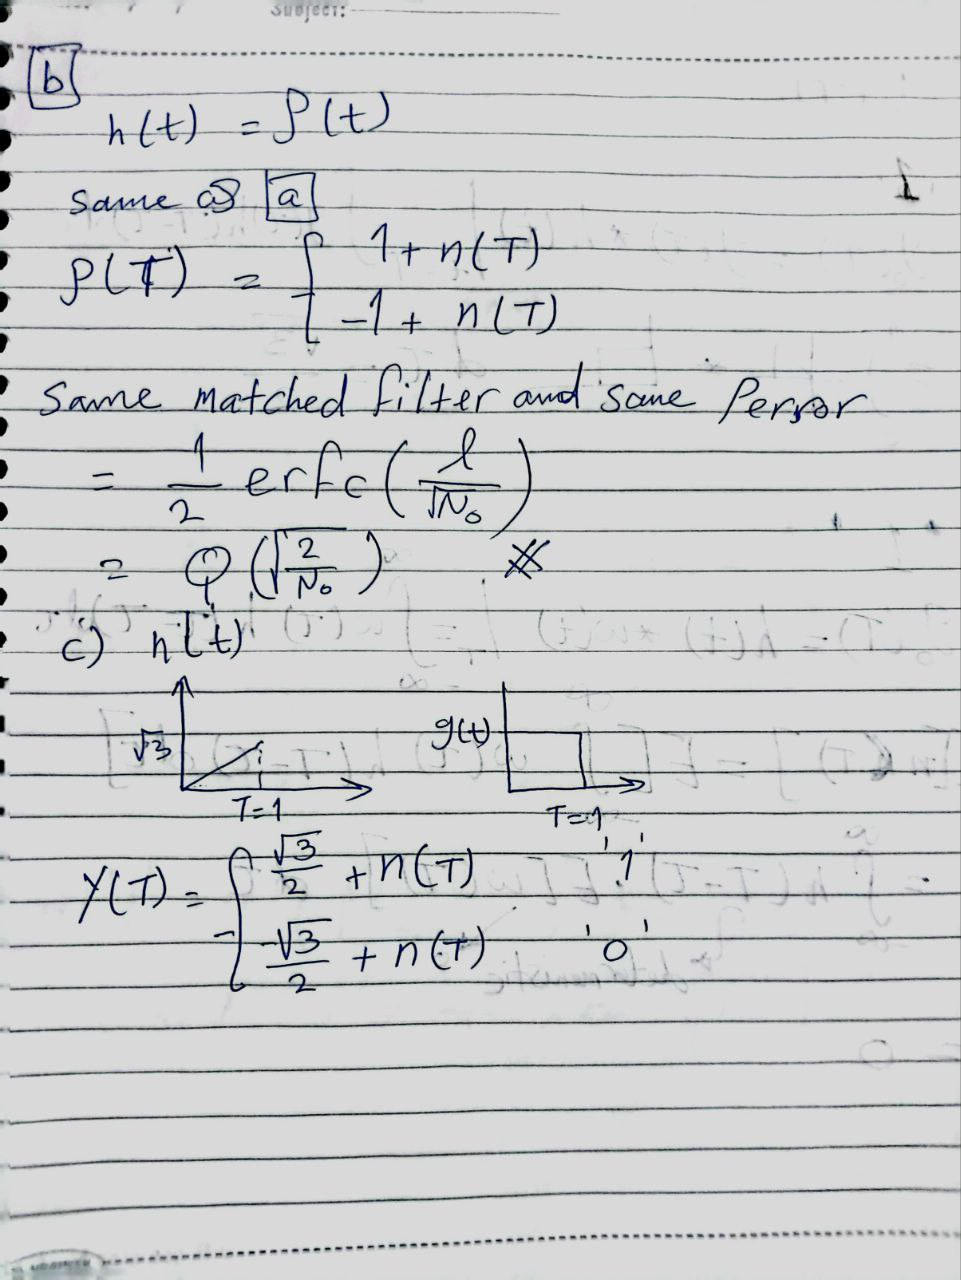 Subject:
b
h(t) = δ(t)
same as a
P(T) = { 1 + n(T)
-1 + n(T)
Same matched filter and same Perror
= 1/2 erfc(1/√N₀)
= Q(√(2/N₀))
c) h(t)
√3 g(t)
T=1 T=1
Y(T) = { √3/2 + n(T) '1'
-√3/2 + n(T) '0'